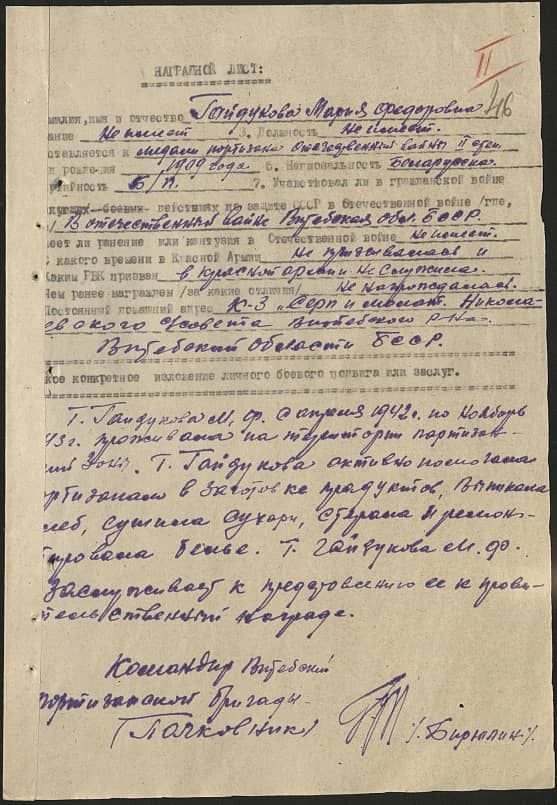 II
НАГРАДНОЙ ЛИСТ:
46
милия, имя и отчество Гайдукова Мария Федоровна
вание Не имеет 3. Должность Не имеет.
ставляется к медали партизана Отечественной войны II степ.
д рождения 1909 года 5. Национальность Беларуска
ртийность Б/п. 7. Участвовал ли в гражданской войне
дующих боевых действиях по защите СССР в отечественной войне /где,
В отечественной войне Витебская обл. БССР.
меет ли ранение или контузия в Отечественной войне Не имеет.
С какого времени в Красной Армии Не призывалась и
Каким РВК призван в красной армии не служила.
Чем ранее награжден /за какие отличия/ Не награждалась.
Постоянный домашний адрес К-з "Серп и молот" Никола-
евского с/совета Витебского р-на
Витебской области БССР.
кое конкретное изложение личного боевого подвига или заслуг.
Т. Гайдукова М. Ф. с апреля 1942 г. по ноябрь
43 г. проживала на територии партизан-
ской зоны. Т. Гайдукова активно помогала
партизанам в заготовке продуктов, выпекала
хлеб, сушила сухари, стирала и ремон-
тировала белье. Т. Гайдукова М. Ф.
заслуживает к представлению ее к прави-
тельственной награде.
Командир Витебской
партизанской бригады
/Полковник/ /. Бирюлин /.